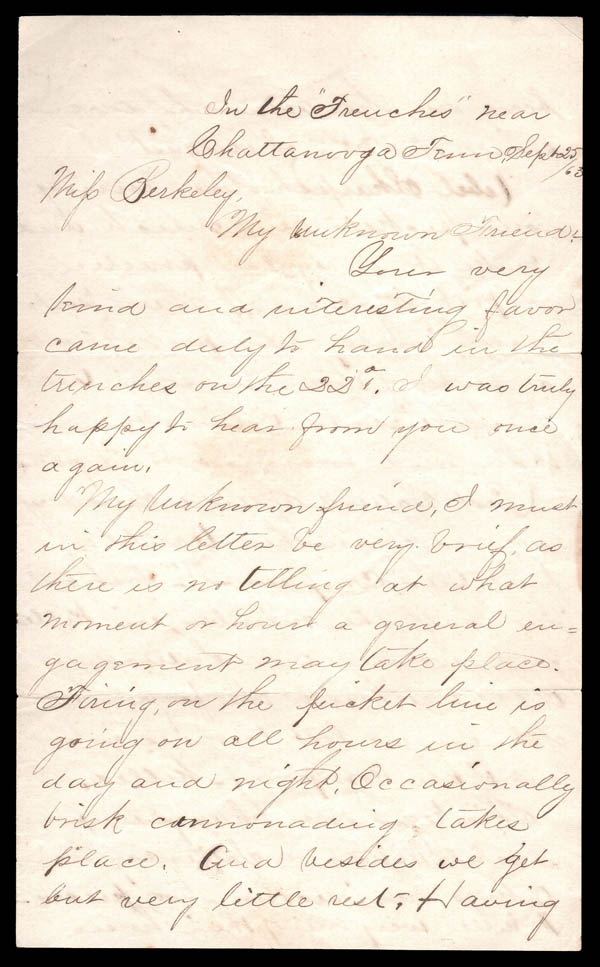 In the "Trenches" near
Chattanooga Tenn Sept 25/63
Miss Berkeley,
My Unknown Friend:
Your very
kind and interesting favor
came duly to hand in the
trenches on the 22d. I was truly
happy to hear from you once
again.
My Unknown friend, I must
in this letter be very brief, as
there is no telling at what
moment or hour a general en=
gagement may take place.
Firing, on the picket line is
going on all hours in the
day and night. Occasionally
brisk cannonading takes
place. And besides we get
but very little rest. Having